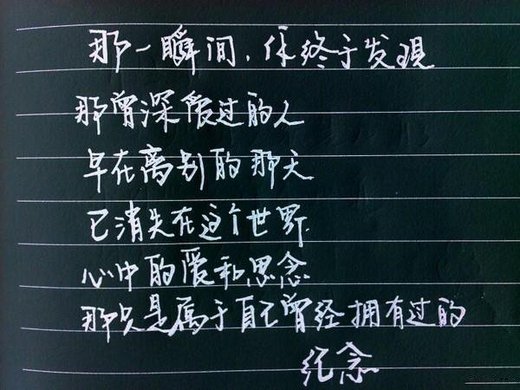 那一瞬间，你终于发现
那曾深爱过的人
早在离别的那天
已消失在这个世界
心中的爱和思念
那只是属于自己曾经拥有过的
纪念